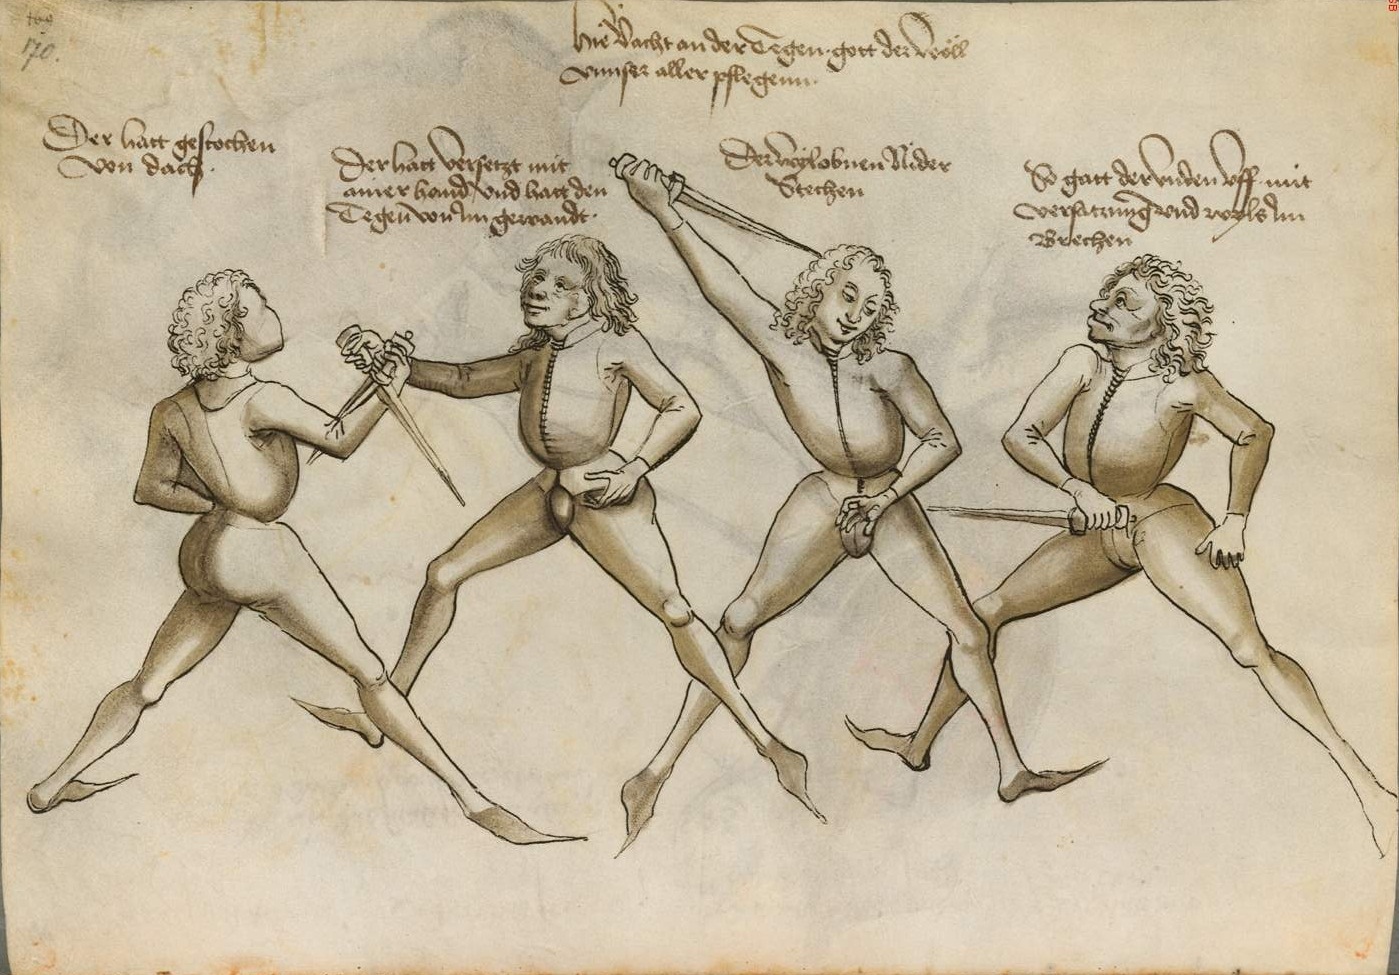 170.
Hie vacht an der Degen gott der wöll
vnnser aller pflegenn.
Der hatt gestochen
von dach.
Der hatt versetzt mit
ainer hand vnd hatt den
Tegen von Im gewandt.
Der wyl obnen Nider
Stechen
So gatt der vnden vff mit
versatzung vnd wyls Im
Brechen